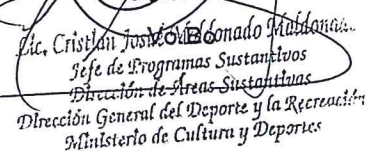 Vo.Bo.
Lic. Cristian Josué Maldonado Maldonado
Jefe de Programas Sustantivos
Dirección de Areas Sustantivas
Dirección General del Deporte y la Recreación
Ministerio de Cultura y Deportes